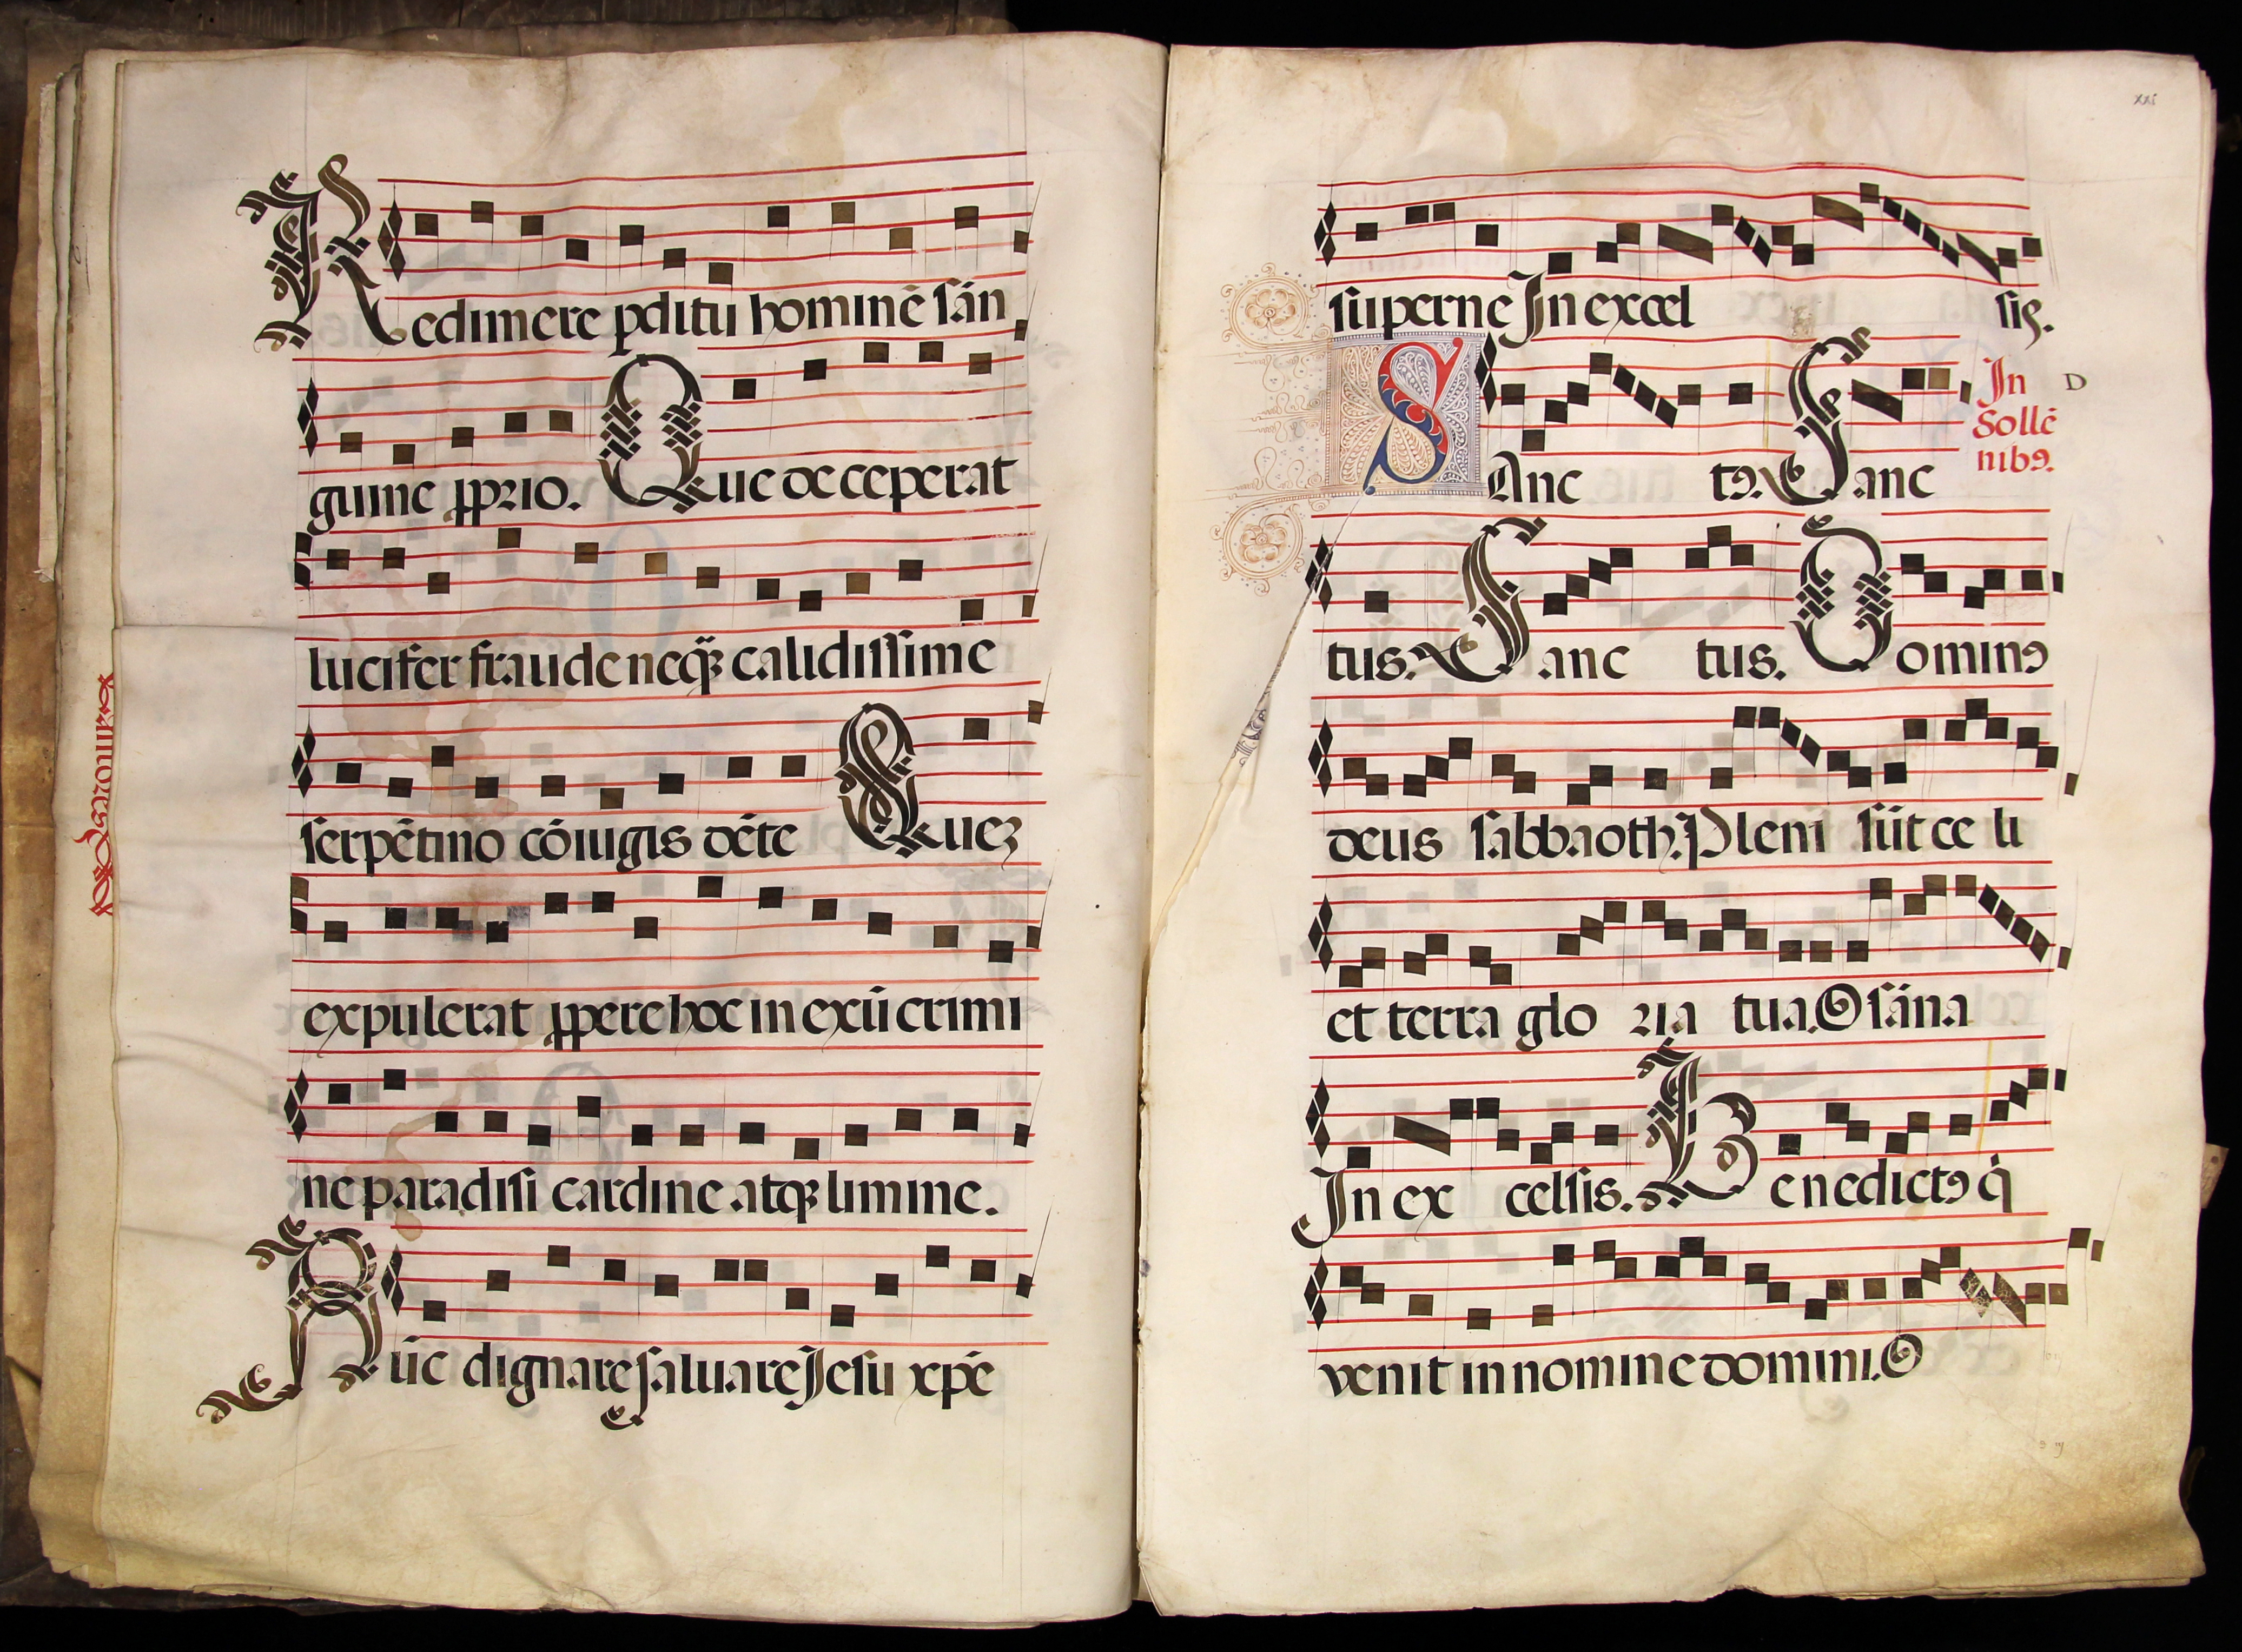 Redimere pditu hominē sán
guine pprio. Que deceperat
lucifer fraude neqꝫ calidissime
serpētino cōiugis dēte Queꝫ
expulerat ppere hoc in exū crimi
ne paradisi cardine atqꝫ limine.
Nūc dignare saluare Jesu xpē
xxi
superne In excel sis.
SAnc tꝰ. Sanc
In
Sollē
nibꝰ.
D
tus. Sanc tus. Dominꝰ
deus sabbaoth. Pleni sūt ce li
et terra glo ria tua. Osána
In ex celsis. Benedictꝰ q̇
venit in nomine domini. O